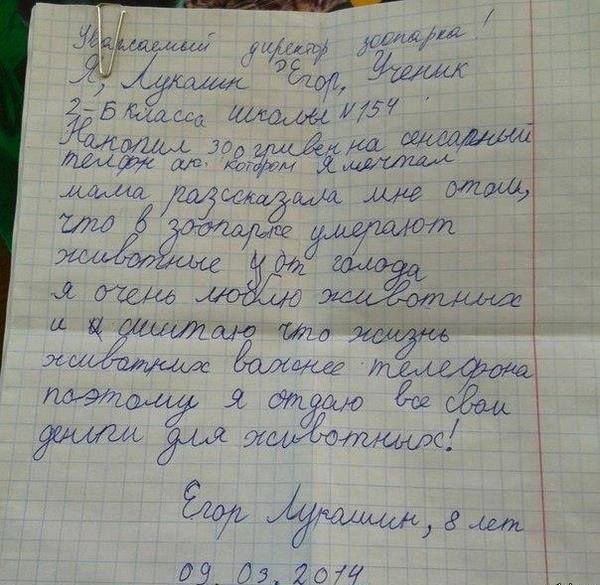 Уважаемый директор зоопарка!
Я, Лукашин Егор, Ученик
2-Б класса школы №154
Накопил 300 гривен на сенсарный
котором я мечтал
мама разссказала мне отом,
что в зоопарке умерают
животные от голода
я очень люблю животных
и считаю что жизнь
животних важнее телефона
поэтому я отдаю все свои
деньги для животных!
Егор Лукашин, 8 лет
09.03.2014